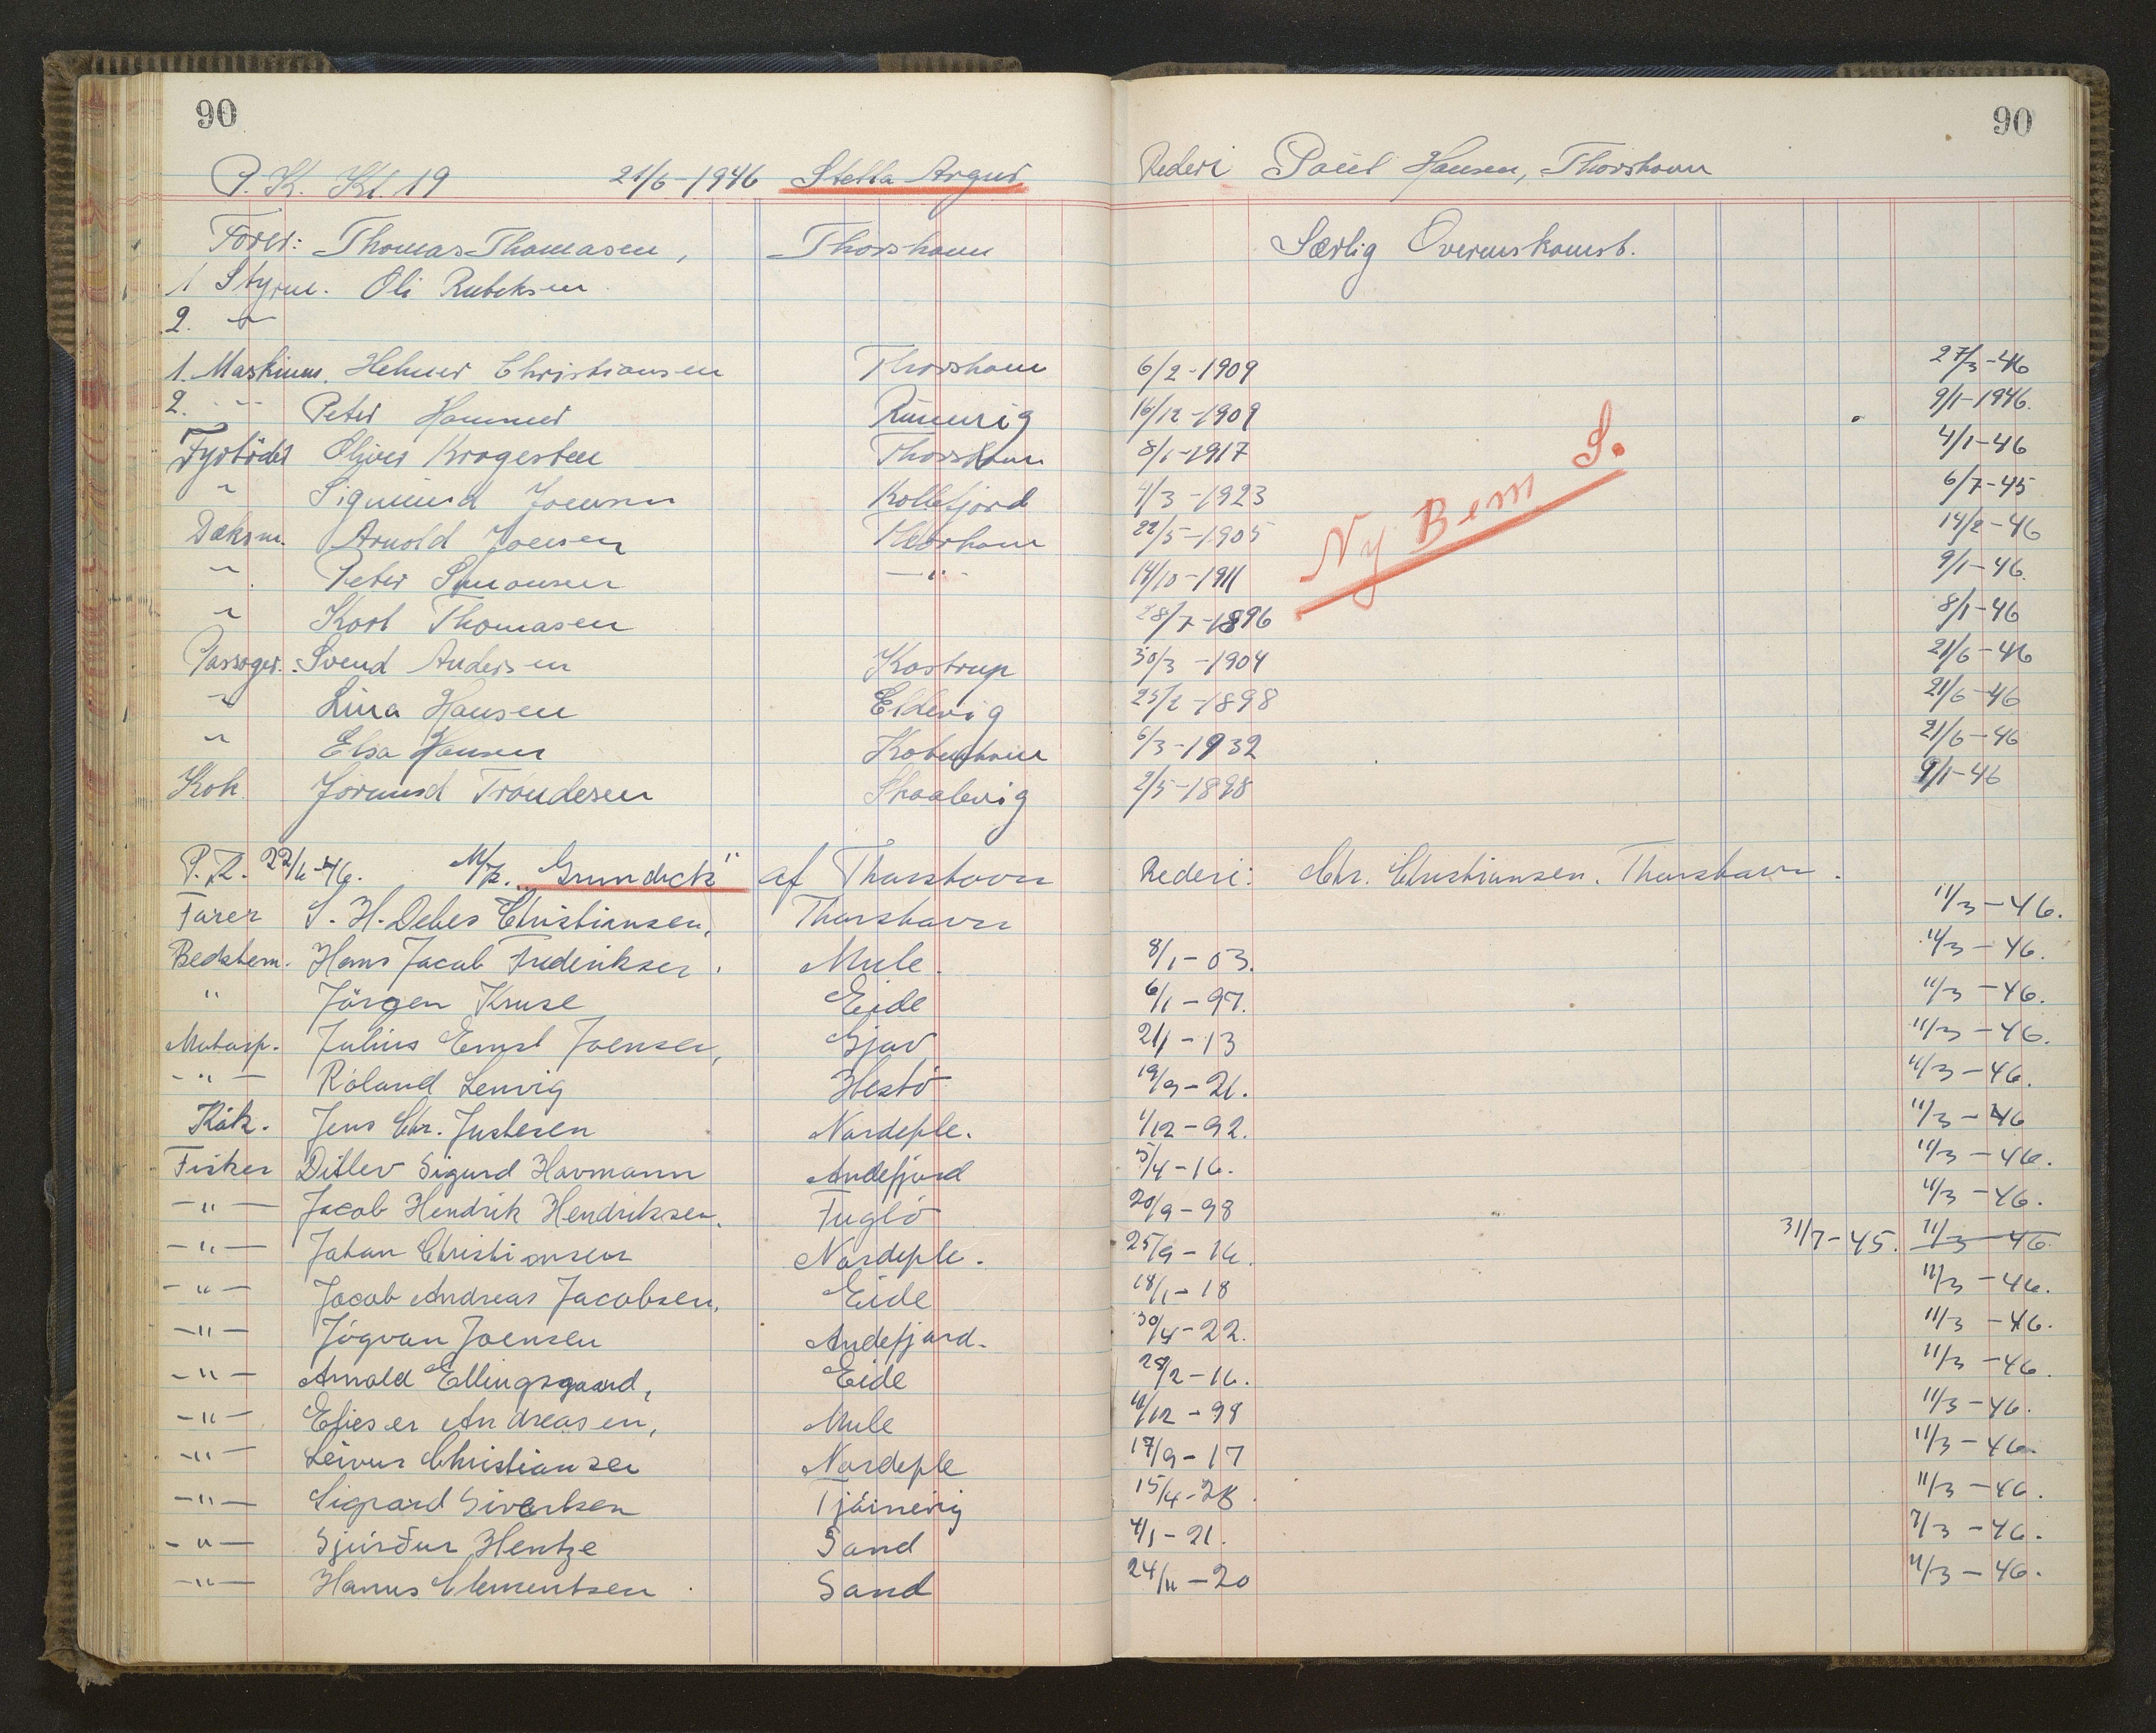 90 90
P. K. Kl. 19 21/6-1946 Stella Argus Rederi Poul Hansen, Thorshavn
Fører: Thomas Thomasen, Thorshavn Særlig Overenskomst.
1 Styrm. Oli Rubeksen
2. "
1. Maskinm. Helmer Christiansen Thorshavn 6/2-1909 27/3-46
2. " Peter Hammer 16/12-1909 9/1-1946.
Fyrbøder Oliver Kragesteen Thorshavn 8/1-1917 4/1-46
" Sigmund Joensen Kollefjord 4/3-1923 6/7-45
Dæksm. Arnold Joensen Thorshavn 22/5-1905 14/2-46
" Peter Simonsen -"- 14/10-1911 9/1-46.
" Karl Thomasen 28/7-1896 8/1-46
Passager.: Svend Andersen Kastrup 30/3-1904 21/6-46
" Lina Hansen Eldevig 1898 21/6-46
" Elsa Hansen København 6/3-1932 21/6-46
Kok Jørmund Tróndesen Skaalevig 2/5-1898 9/1-46
Ny Bem S.
P. R. 22/6-46. M/k. "Grundick" af Thorshavn Rederi: Chr. Christiansen. Thorshavn.
Fører S. H. Debes Christiansen, Thorshavn 11/3-46.
Bedstem. Hans Jacob Frederiksen. Mule. 8/1-03. 11/3-46.
" Jörgen Kruse Eide 6/1-97. 11/3-46.
Motorp. Julius Ernst Joensen, Gjov 21/1-13 11/3-46.
-"- Roland Lenvig Hestö 19/9-21. 11/3-46.
Kok. Jens Chr. Justesen Nordeple. 1/12-92. 11/3-46
Fisker Ditlev Sigurd Havmann Andefjord 5/4-16. 11/3-46.
-"- Jacob Hendrik Hendriksen. Fuglö 20/9-98 11/3-46.
-"- Johan Christiansen Nordeple. 25/9-16. 31/7-45. 11/3-46
-"- Jacob Andreas Jacobsen, Eide 18/1-18 11/3-46.
-"- Jógvan Joensen Andefjord. 30/4-22. 11/3-46.
-"- Arnold Ellingsgaard, Eide 28/2-16. 11/3-46.
-"- Elieser Andreasen, Mule 11/12-98 11/3-46.
-"- Leivur Christiansen Nordeple 17/9-17 11/3-46.
-"- Sigvard Sivertsen Tjörnevig 15/4-28. 11/3-46.
-"- Sjúrður Hentze Sand 4/1-21. 7/3-46.
-"- Hanus Clementsen. Sand 24/11-20 11/3-46.